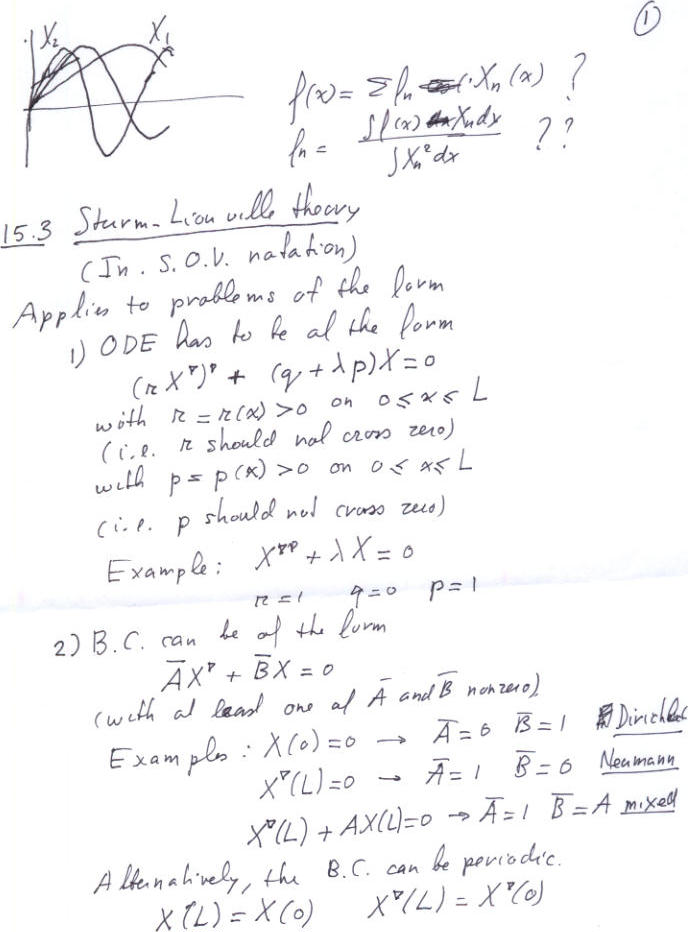 ①
X₂ X₁
f(x) = Σ fₙ · Xₙ(x) ?
fₙ = ∫f(x) Xₙdx / ∫Xₙ²dx ??
15.3 Sturm-Liouville theory
(In. S.O.V. notation)
Applies to problems of the form
1) ODE has to be of the form
(r X')' + (q + λp)X = 0
with r = r(x) > 0 on 0 ≤ x ≤ L
(i.e. r should not cross zero)
with p = p(x) > 0 on 0 ≤ x ≤ L
(i.e. p should not cross zero)
Example: X'' + λX = 0
r = 1 q = 0 p = 1
2) B.C. can be of the form
A̅X' + B̅X = 0
(with at least one of A̅ and B̅ nonzero)
Examples: X(0) = 0 → A̅ = 0 B̅ = 1 Dirichlet
X'(L) = 0 → A̅ = 1 B̅ = 0 Neumann
X'(L) + AX(L) = 0 → A̅ = 1 B̅ = A mixed
Alternatively, the B.C. can be periodic.
X(L) = X(0) X'(L) = X'(0)